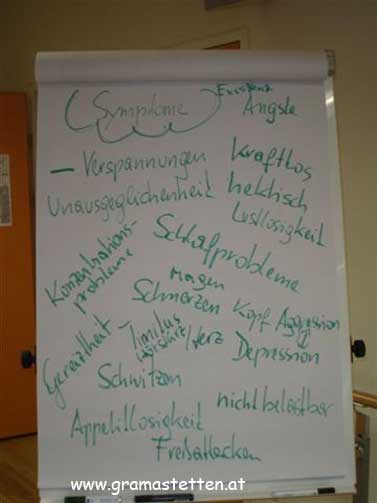 Symptome
Existenz
Ängste
– Verspannungen
Kraftlos
Unausgeglichenheit
hektisch
Lustlosigkeit
Konzentrations-
probleme
Schlafprobleme
Magen
Schmerzen
Kopf
Aggression
Gereiztheit
Tinitus
/Herz
Depression
Schwitzen
nicht belastbar
Appetitlosigkeit
Freßattacken
www.gramastetten.at